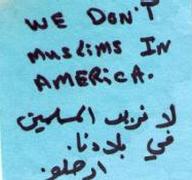 WE DON'T
MUSLIMS IN
AMERICA.
لا نريد المسلمين
في بلادنا.
ارحلو